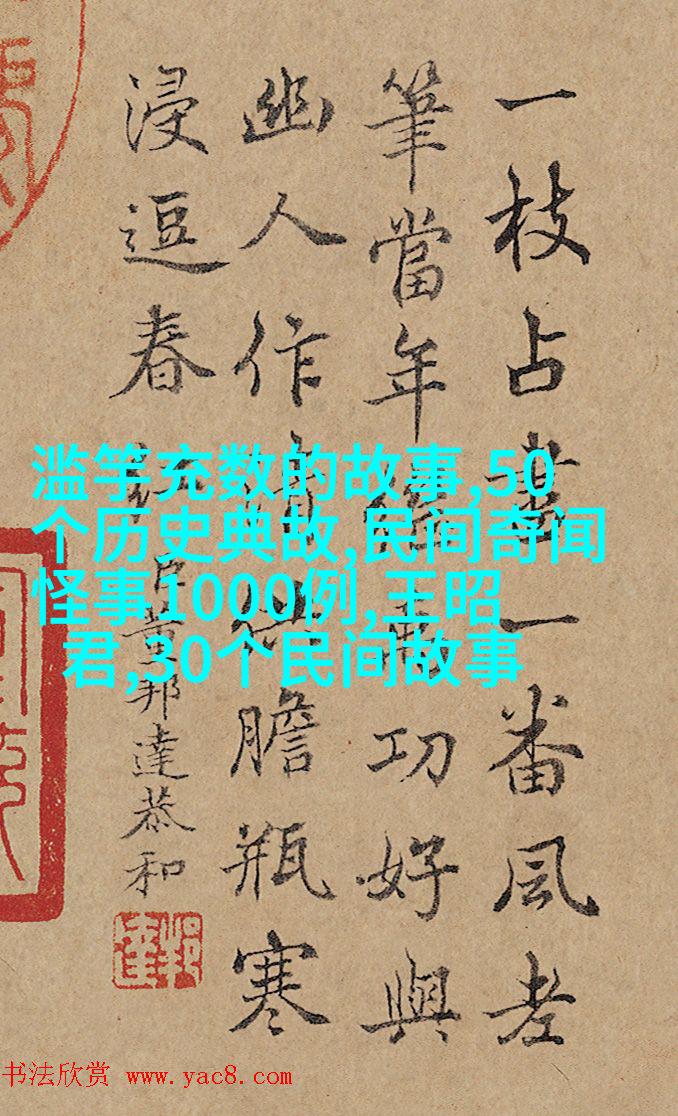 一枝占盡一番風老
筆當年功好與
幽人作供膽瓶寒
浸逗春
臣董邦達恭和
滥竽充数的故事,50
个历史典故,民间奇闻
怪事1000例,王昭
君,30个民间故事
书法欣赏 www.yac8.com